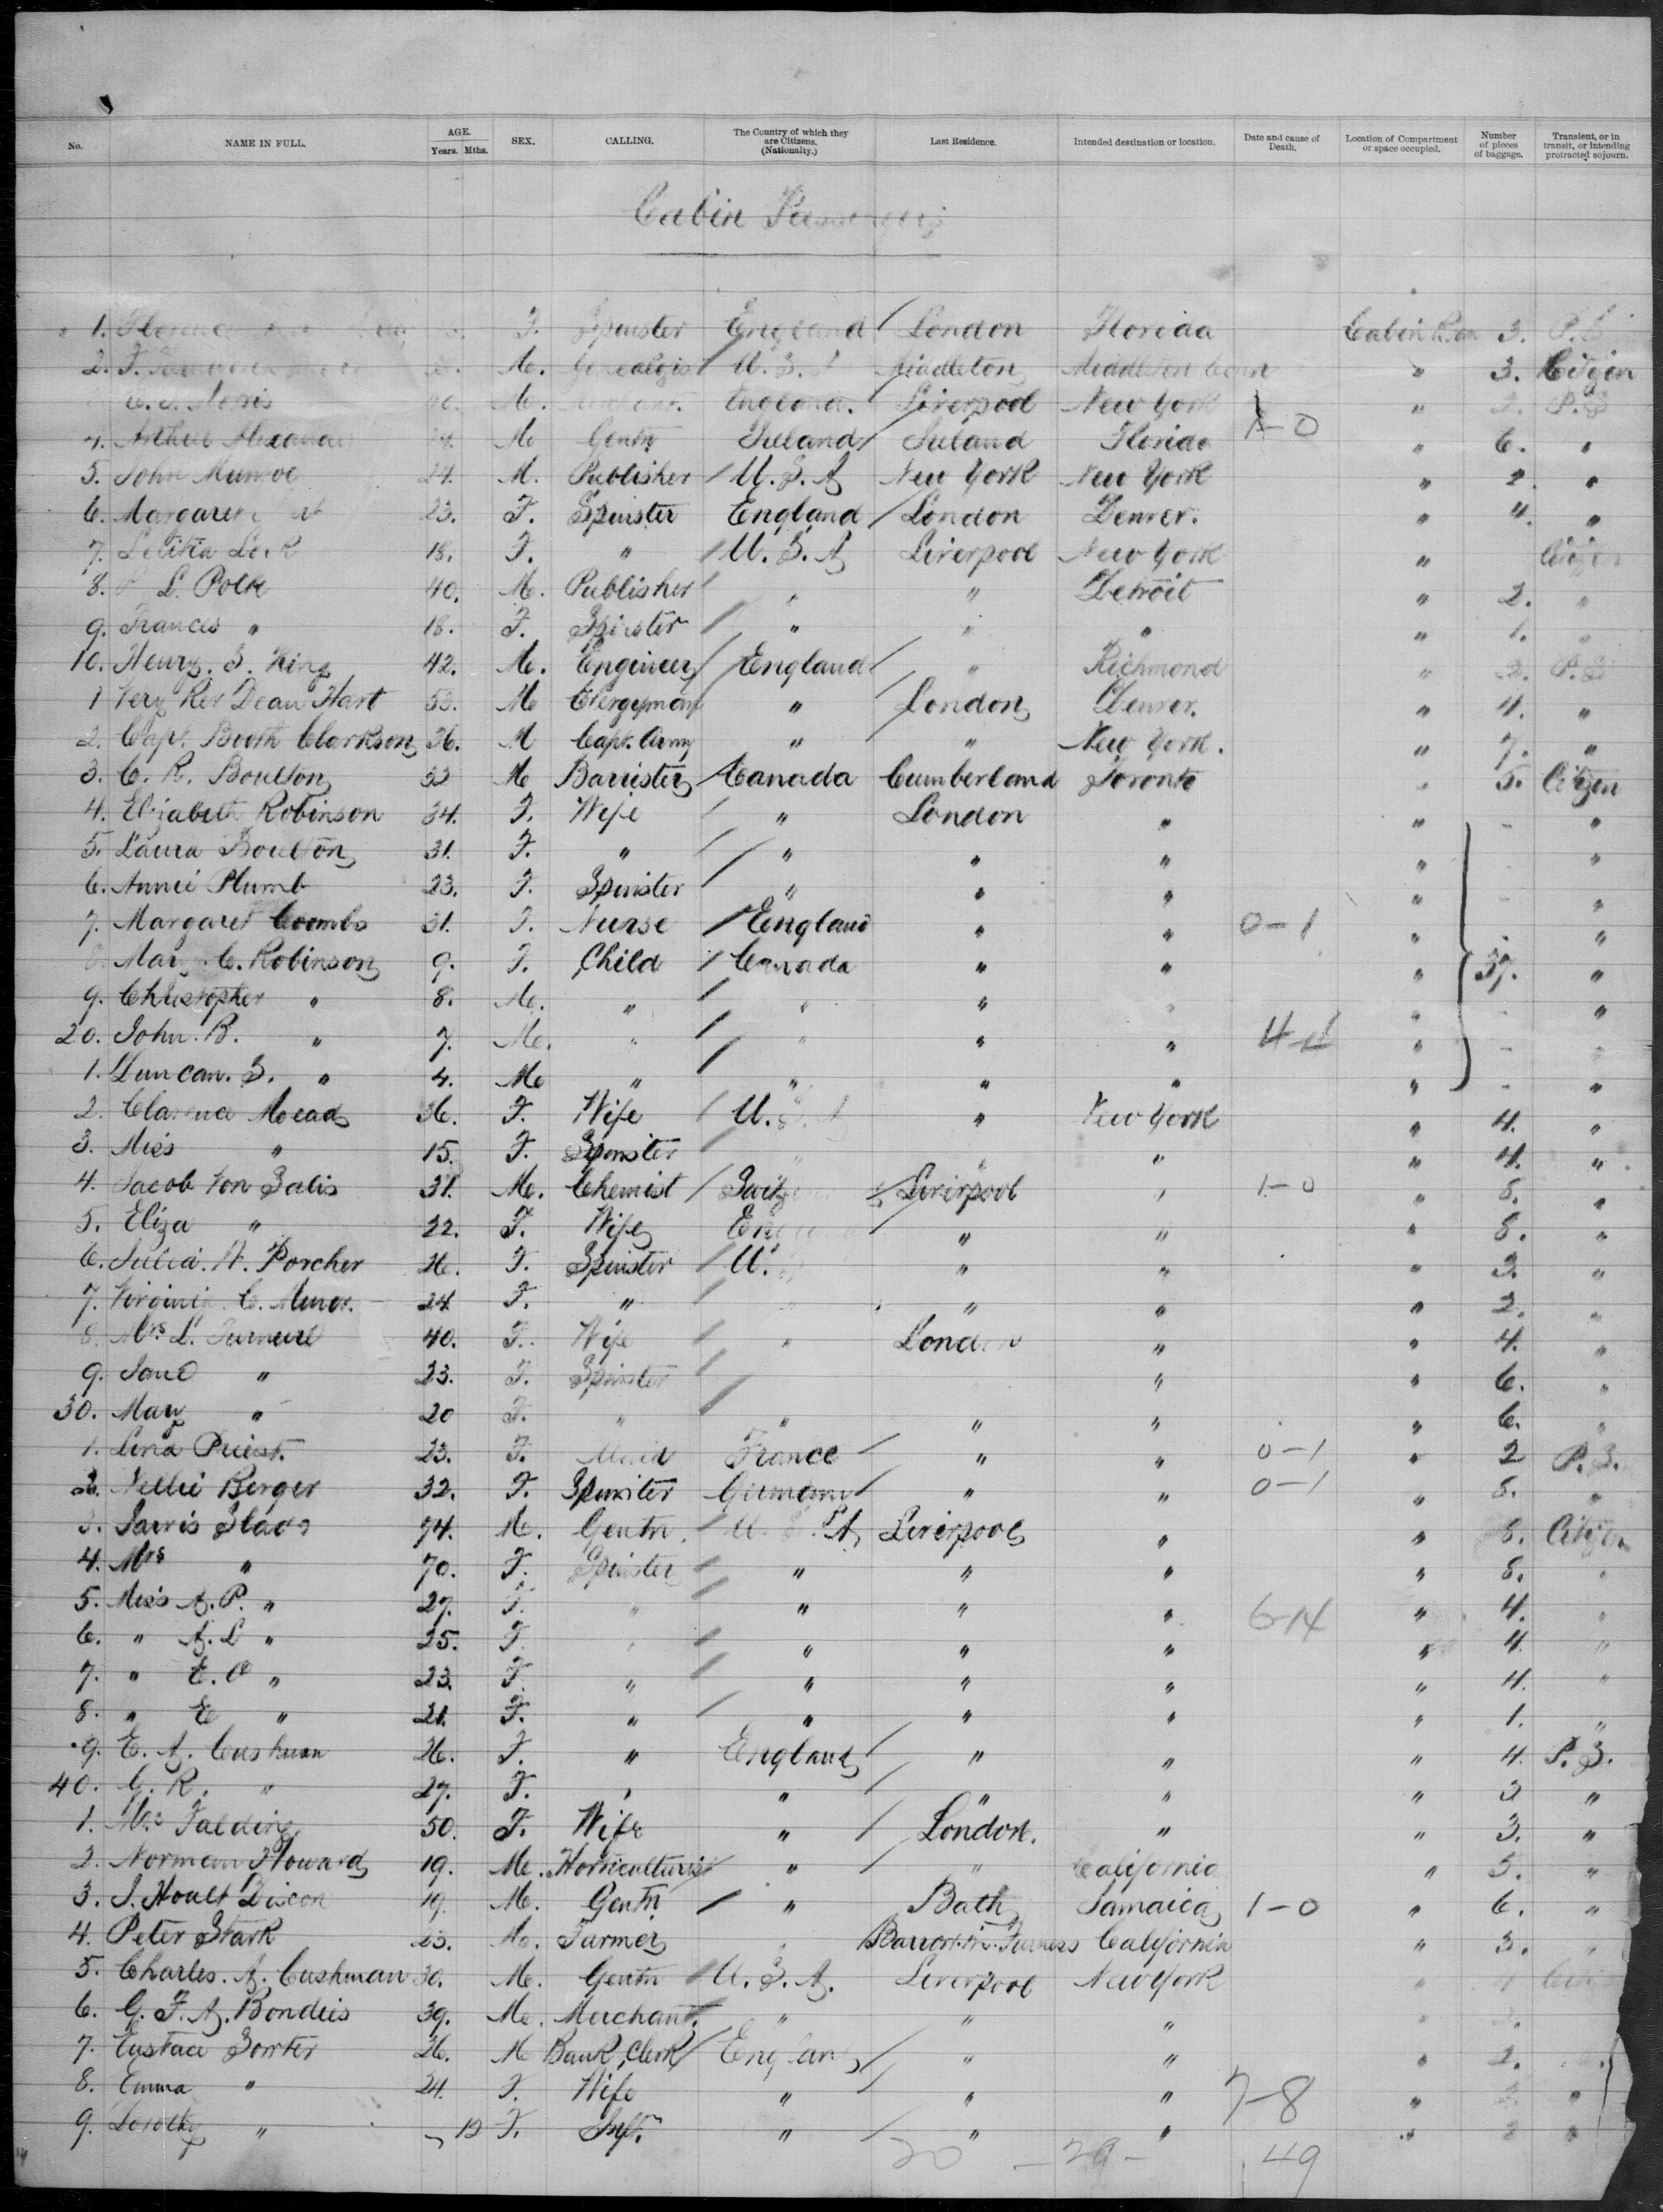 No. NAME IN FULL. AGE. Years. Mths. SEX. CALLING. The Country of which they are Citizens. (Nationalty.) Last Residence. Intended destination or location. Date and cause of Death. Location of Compartment or space occupied. Number of pieces of baggage. Transient, or in transit, or intending protracted sojourn.
Cabin Passengers
1. Florence F. Spinster England London Florida Cabin 3.
2. F. M. Genealogist U.S.A Middleton Middleton Conn " 3. Citizen
Morris M. England. Liverpool New York "
4. Arthur Alexander M Gentn Ireland Ireland Florida 1-0 " 6. "
5. John Munroe 24. M. Publisher U.S.A New York New York " 2. "
6. Margaret 23. F. Spinster England London Denver. " 4. "
7. Letitia 18. F. " U.S.A Liverpool New York " Citizen
8. L. Polk 40. M. Publisher " " Detroit " 2. "
9. Frances " 18. F. Spinster " " " " 1. "
10. Henry. S. King 42. M. Engineer England " Richmond " P.S
1 Very Rev Dean Hart 53. M Clergyman " London Denver. " 4. "
2. Capt. Booth Clarkson 36. M Capt. Army " " New York. " 7. "
3. C. R. Boulton 33 M Barrister Canada Cumberland Toronto " 5. Citizen
4. Elizabeth Robinson 34. F. Wife " London " " - "
5. Laura Boulton 31. F. " " " " " - "
6. Annie Plumb 23. F. Spinster " " " " - "
7. Margaret Coombs 31. F. Nurse England " " 0-1 " - "
8. Mary C. Robinson 9. F. Child Canada " " " 37. "
9. Christopher " 8. M. " " " " " - "
20. John. B. " 7. M. " " " " 4-4 " - "
1. Duncan. S. " 4. M " " " " " - "
2. Clarence Mead 36. F. Wife U.S.A " New York " 4. "
3. Miss " 15. F. Spinster " " " " 4. "
4. Jacob Von Salis 31. M. Chemist Liverpool " 1-0 " 8. "
5. Eliza " 22. F. Wife " " " 8. "
6. Julia. W. Porcher 26. F. Spinster U. " " " 3. "
7. Virginia. C. Minor. 24 F. " " " " " 2. "
8. Mrs L. 40. F. Wife " London " " 4. "
9. Jane " 23. F. Spinster " " 6. "
30. Mary " 20 F. " " " " " 6. "
1. Lena Priest. 23. F. Maid France " " 0-1 " 2 P.S.
2. Nellie Berger 32. F. Spinster Germany " " 0-1 " 8. "
3. Jarvis Slade 74. M. Gentn. U.S.A Liverpool " " 8. Citizen
4. Mrs " 70. F. Spinster " " " " 8. "
5. Miss A. P. " 27. F. " " " " 6-14 " 4. "
6. " A. L " 25. F. " " " " " 4. "
7. " E. O " 23. F. " " " " " 4. "
8. " E " 21. F. " " " " " 1. "
9. E. A. Cushman 26. F. " England " " " 4. P.S.
40. G. R. " 27. F. " " " " " 3 "
1. Mrs Falding 50. F. Wife " London. " " 3. "
2. Norman Howard 19. M. Horticulturist " " California " 5. "
3. J. Hoult Dixon 19. M. Gentn " Bath Jamaica 1-0 " 6. "
4. Peter Stark 23. M. Farmer Barrow.in.Furness California " 3. "
5. Charles. A. Cushman 30. M. Gentn U.S.A. Liverpool New York "
6. G. F. A. Bondies 39. M. Merchant. " " " "
7. Eustace Sowter 26. M Bank Clerk England " " " 2.
8. Emma " 24. F. Wife " " " 7-8 " "
9. Dorothy " F. Inft. " " " "
20 - 29 - 49